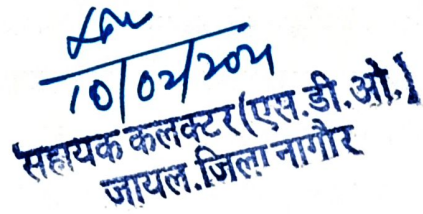 10/02/2021
सहायक कलक्टर (एस.डी.ओ.)
जायल.जिला नागौर